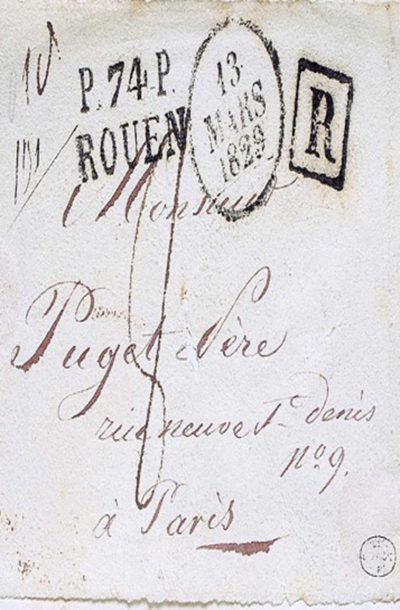 P.74.P.
ROUEN
13
MARS
1829
R
Monsieur
Puget Père
rue neuve St denis
no 9.
à Paris